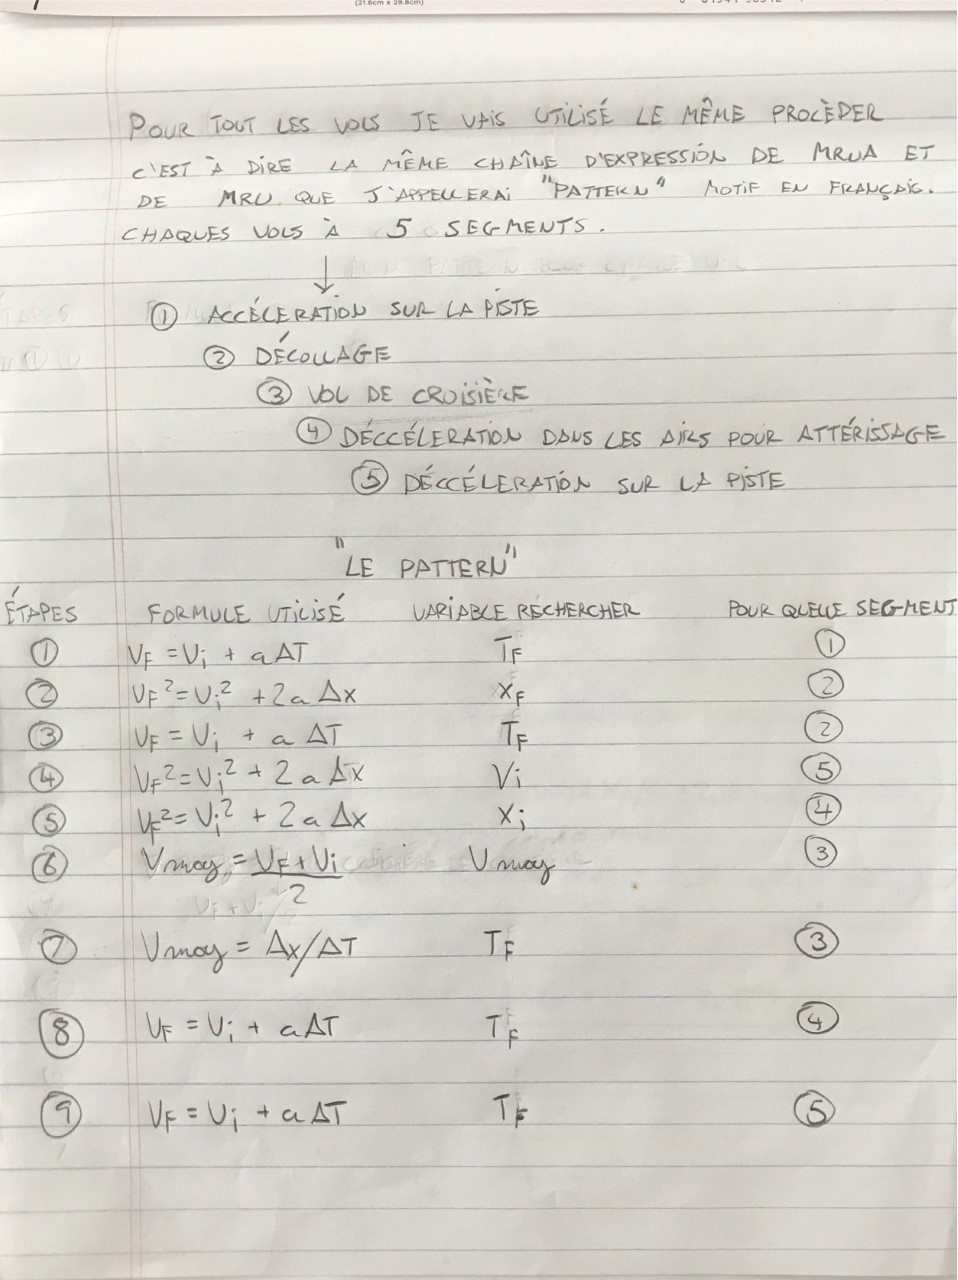 (21.6cm x 29.8cm)
POUR TOUT LES VOLS JE VAIS UTILISÉ LE MÊME PROCÈDER
C'EST À DIRE LA MÊME CHAÎNE D'EXPRESSION DE MRUA ET
DE MRU QUE J'APPELLERAI "PATTERN" MOTIF EN FRANÇAIS.
CHAQUES VOLS À 5 SEGMENTS.
↓
① ACCÉLERATION SUR LA PISTE
② DÉCOLLAGE
③ VOL DE CROISIÈRE
④ DÉCCÉLERATION DANS LES AIRS POUR ATTÉRISSAGE
⑤ DÉCCÉLERATION SUR LA PISTE
"LE PATTERN"
ÉTAPES FORMULE UTILISÉ VARIABLE RECHERCHER POUR QUELLE SEGMENT
① VF = Vi + aΔT TF ①
② VF² = Vi² + 2aΔx XF ②
③ VF = Vi + aΔT TF ②
④ VF² = Vi² + 2aΔx Vi ⑤
⑤ VF² = Vi² + 2aΔx Xi ④
⑥ Vmoy = VF + Vi / 2 Vmoy ③
⑦ Vmoy = Δx/ΔT TF ③
⑧ VF = Vi + aΔT TF ④
⑨ VF = Vi + aΔT TF ⑤